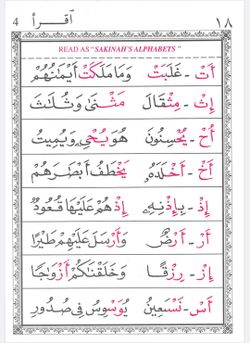 4 اقرأ ١٨
READ AS "SAKINAH'S ALPHABETS"
أَتْ - غَلَبَتْ وَمَا مَلَكَتْ أَيْمَٰنُهُمْ
إِثْ - مِثْقَالَ مَثْنَىٰ وَثُلَٰثَ
أَحْ - يُحْسِنُونَ هُوَ يُحْيِۦ وَيُمِيتُ
أَخْ - أَخْلَدَهُۥ يَخْطَفُ أَبْصَٰرَهُمْ
إِذْ - بِإِذْنِهِۦ إِذْ هُمْ عَلَيْهَا قُعُودٌ
أَرْ - أَرْضُ وَأَرْسَلَ عَلَيْهِمْ طَيْرًا
إِزْ - رِزْقًا وَخَلَقْنَٰكُمْ أَزْوَٰجًا
أَسْ - نَسْتَعِينُ يُوَسْوِسُ فِى صُدُورِ